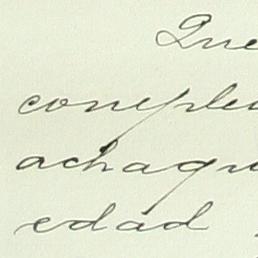 Que
comple
achaqu
edad